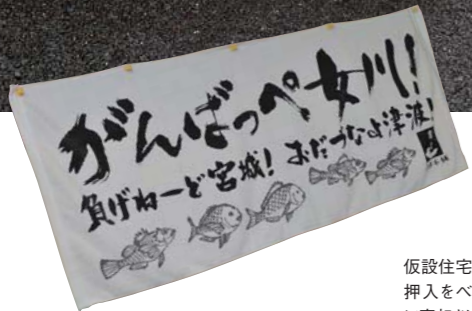 がんばっぺ女川！
負げねーど宮城！ おだづなよ津波！
仮設住宅
押入をベ